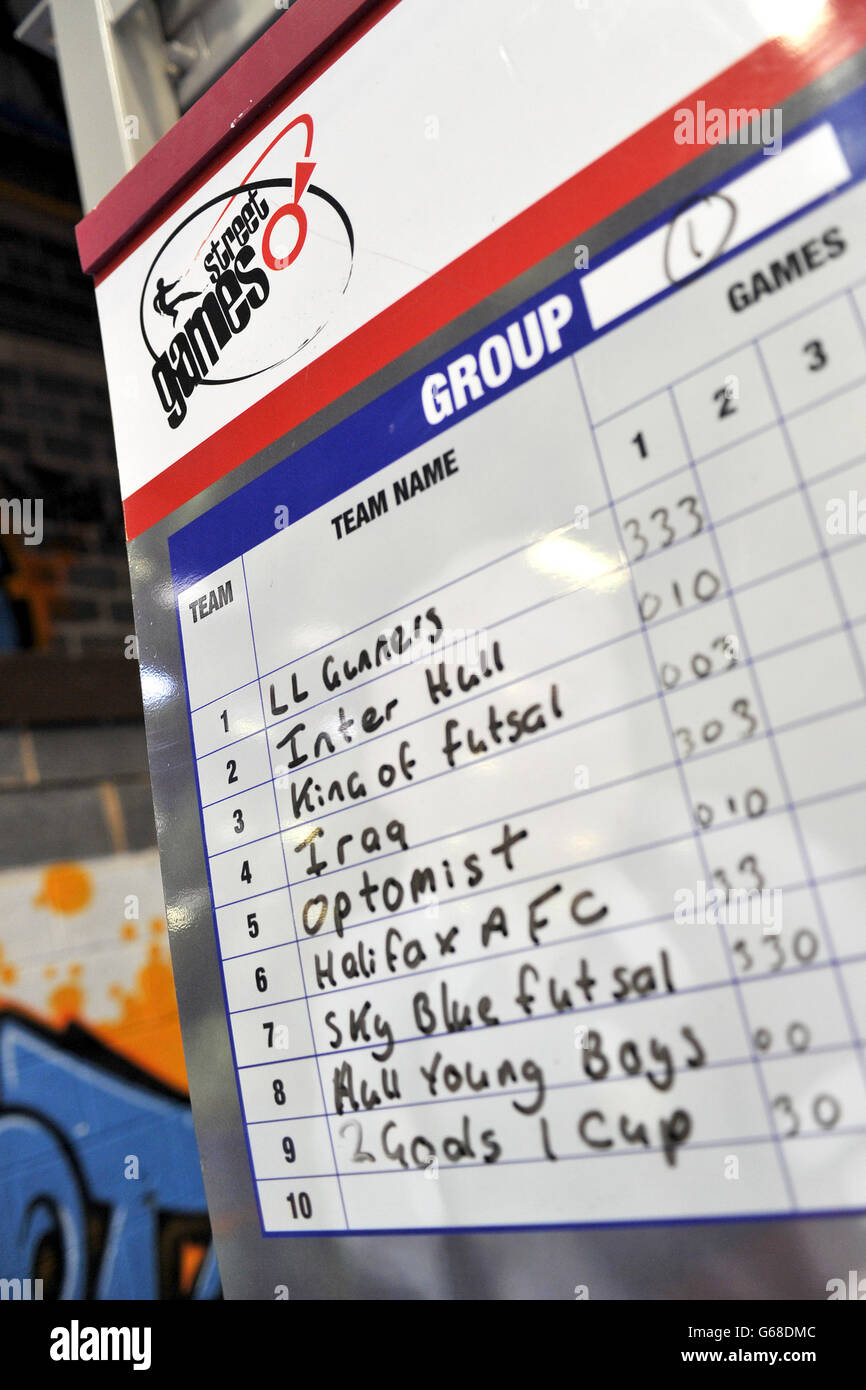 street
games
GROUP 1
GAMES
TEAM TEAM NAME 1 2 3
1 LL Gunners 333
2 Inter Hull 010
3 King of futsal 003
4 Iraq 303
5 Optomist 010
6 Halifax AFC 33
7 Sky Blue futsal 330
8 Hull Young Boys 00
9 2 Goals 1 Cup 30
10
alamy
Image ID: G68DMC
www.alamy.com